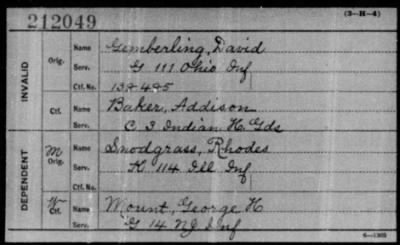 212049
(3-H-4)
Name Gemberling, David
INVALID Orig. Serv. G 111 Ohio Inf
Ctf. No. 132485
Name Baker, Addison
Ctf. Serv. C 3 Indian H. Gds
M Name Snodgrass, Rhodes
DEPENDENT Orig. Serv. K 114 Ill Inf
W Name Mount, George H
Ctf. Serv. G 14 NJ Inf